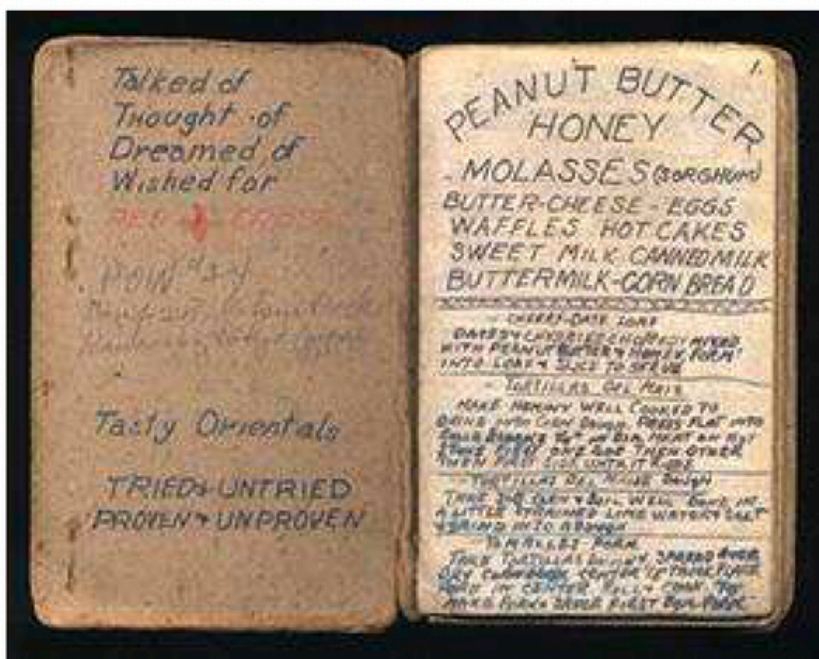 Talked of
Thought of
Dreamed of
Wished for
RED CROSS
POW #24
Tasty Orientals
TRIED & UNTRIED
PROVEN & UNPROVEN
1.
PEANUT BUTTER
HONEY
- MOLASSES (SORGHUM)
BUTTER-CHEESE-EGGS
WAFFLES HOT CAKES
SWEET MILK CANNED MILK
BUTTERMILK-CORN BREAD
- CHERRY-DATE LOAF
DATES & CHERRIES CHOPPED MIXED
WITH PEANUT BUTTER & HONEY FORM
INTO LOAF & SLICE TO SERVE
- TORTILLAS DEL MAIS
MAKE HOMINY WELL COOKED TO
GRIND INTO CORN DOUGH PRESS FLAT INTO
ON HOT
FIRST ONE SIDE THEN OTHER
THEN FIRST SIDE UNTIL IT
- TORTILLAS DEL MAISE DOUGH
TAKE CORN & BOIL WELL DONE IN
A LITTLE STRAINED LIME WATER & SALT
& GRIND INTO A DOUGH
TAMALES FORM
TAKE TORTILLAS DOUGH SPREAD OVER
DRY CENTER PLACE
IN CENTER ROLL &